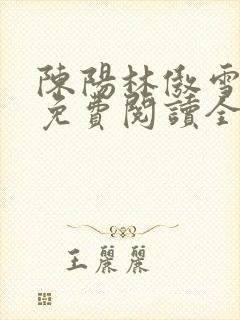 陳陽林傲雪
免費閱讀全
王麗麗